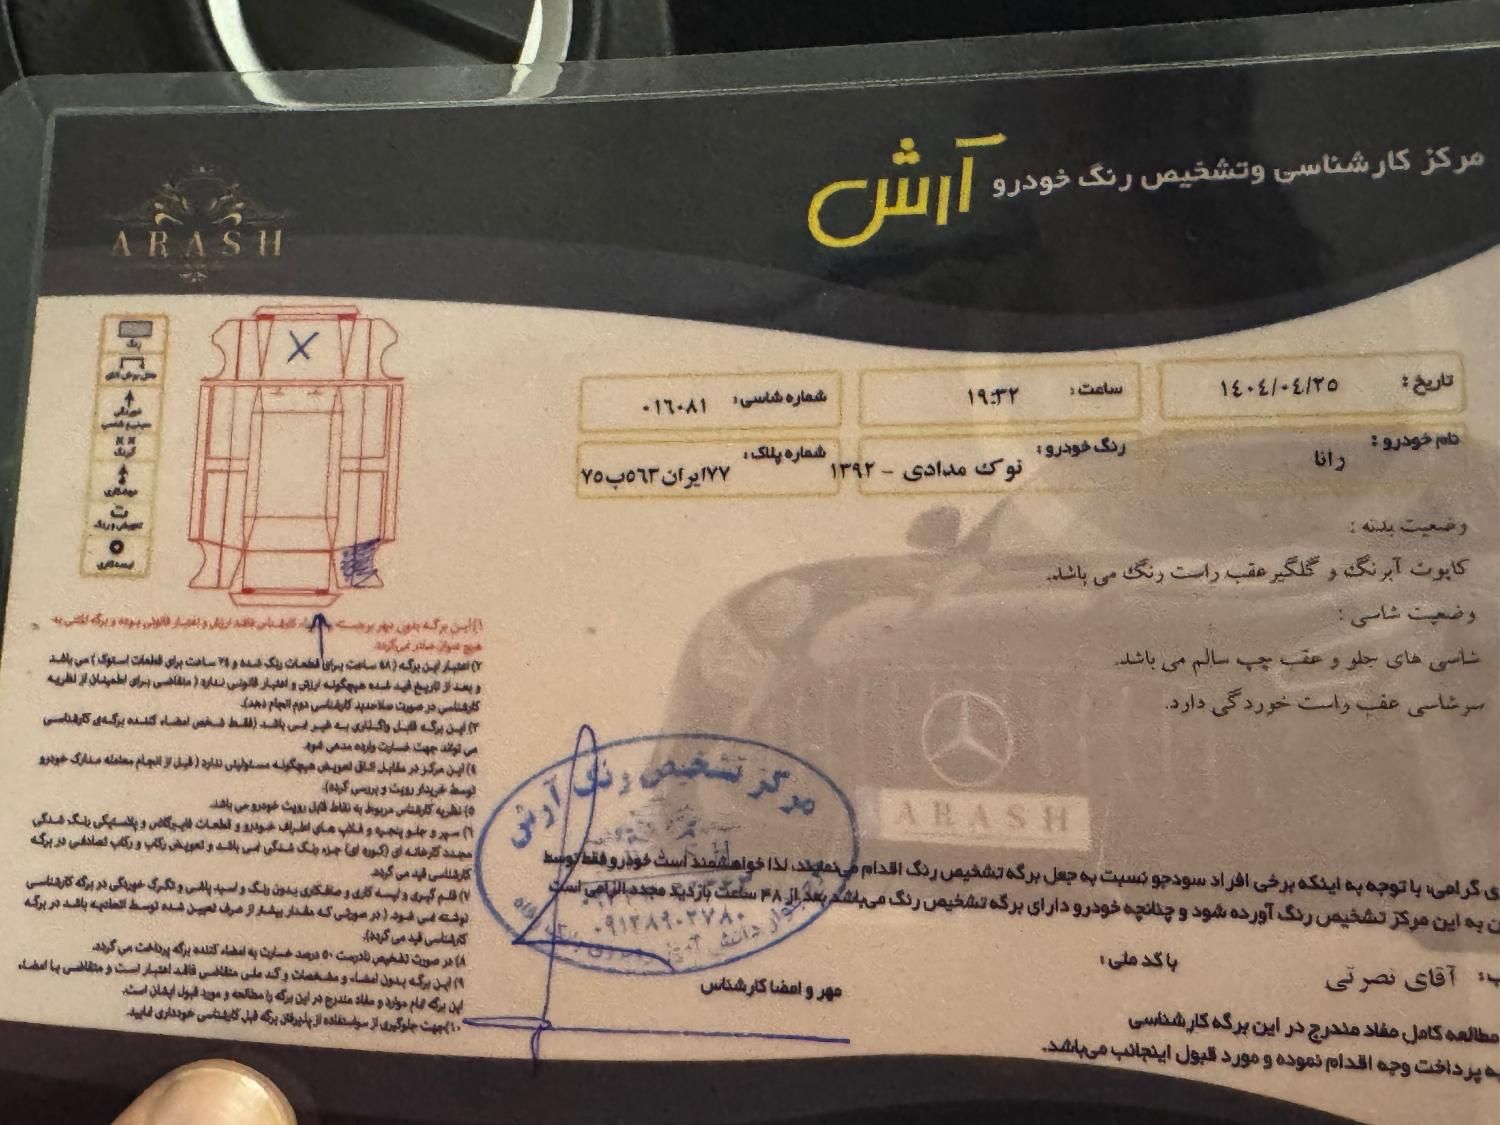 مرکز کارشناسی وتشخیص رنگ خودرو آرش
ARASH
تاریخ: ۱۴۰۴/۰۴/۲۵
ساعت: ۱۹:۳۲
شماره شاسی: ۰۱۶۰۸۱
نام خودرو: رانا
رنگ خودرو: نوک مدادی - ۱۳۹۲
شماره پلاک: ۷۷ایران۵۶۳ب۷۵
وضعیت بدنه:
کاپوت آبرنگ و گلگیر عقب راست رنگ می باشد.
وضعیت شاسی:
شاسی های جلو و عقب چپ سالم می باشد.
سرشاسی عقب راست خوردگی دارد.
ARASH
رنگ
خوردگی
آبرنگ
تعویض و رنگ
لیسه‌کاری
X
۱) این برگه بدون مهر برجسته کارشناس فاقد ارزش و اعتبار قانونی بوده و برگه المثنی به
هیچ عنوان صادر نمی‌گردد.
۲) اعتبار این برگه (۴۸ ساعت برای قطعات رنگ شده و ۲۴ ساعت برای قطعات استوک) می باشد
و بعد از تاریخ قید شده هیچگونه ارزش و اعتبار قانونی ندارد (متقاضی برای اطمینان از نظریه
کارشناسی در صورت صلاحدید کارشناسی دوم انجام دهد).
۳) این برگه قابل واگذاری به غیر نمی باشد (فقط شخص امضاء کننده برگه‌ی کارشناسی
می تواند جهت خسارت وارده مدعی شود.
۴) این مرکز در مقابل اتاق تعویض هیچگونه مسئولیتی ندارد (قبل از انجام معامله مدارک خودرو
توسط خریدار رویت و بررسی گردد).
۵) نظریه کارشناس مربوط به نقاط قابل رویت خودرو می باشد.
۶) سپر و جلو پنجره و قلاب های اطراف خودرو و قطعات فایبرگلاس و پلاستیکی رنگ شدگی
مجدد کارخانه ای (کوره ای) جزء رنگ شدگی نمی باشد و تعویض رکاب و رکاب تصادفی در برگه
کارشناسی قید می گردد.
۷) قلم گیری و لیسه کاری و صافکاری بدون رنگ و اسید پاشی و تگرگ خوردگی در برگه کارشناسی
نوشته نمی شود (در صورتی که مقدار بیشتر از عرف تعیین شده توسط اتحادیه باشد در برگه
کارشناسی قید می گردد).
۸) در صورت تشخیص نادرست ۵۰ درصد خسارت به امضاء کننده برگه پرداخت می گردد.
۹) این برگه بدون امضاء و مشخصات و کد ملی متقاضی فاقد اعتبار است و متقاضی با امضاء
این برگه تمام موارد و مفاد مندرج در این برگه را مطالعه و مورد قبول ایشان است.
۱۰) جهت جلوگیری از سواستفاده از پذیرفتن برگه قبل کارشناسی خودداری نمایید.
مرکز تشخیص رنگ آرش
۰۹۱۲۸۹۰۲۷۸۰
ی گرامی، با توجه به اینکه برخی افراد سودجو نسبت به جعل برگه تشخیص رنگ اقدام می‌نمایند، لذا خواهشمند است خودرو فقط توسط
ن به این مرکز تشخیص رنگ آورده شود و چنانچه خودرو دارای برگه تشخیص رنگ می‌باشد بعد از ۴۸ ساعت بازدید مجدد الزامی است
آقای نصرتی
با کد ملی:
مطالعه کامل مفاد مندرج در این برگه کارشناسی
به پرداخت وجه اقدام نموده و مورد قبول اینجانب می‌باشد.
مهر و امضا کارشناس